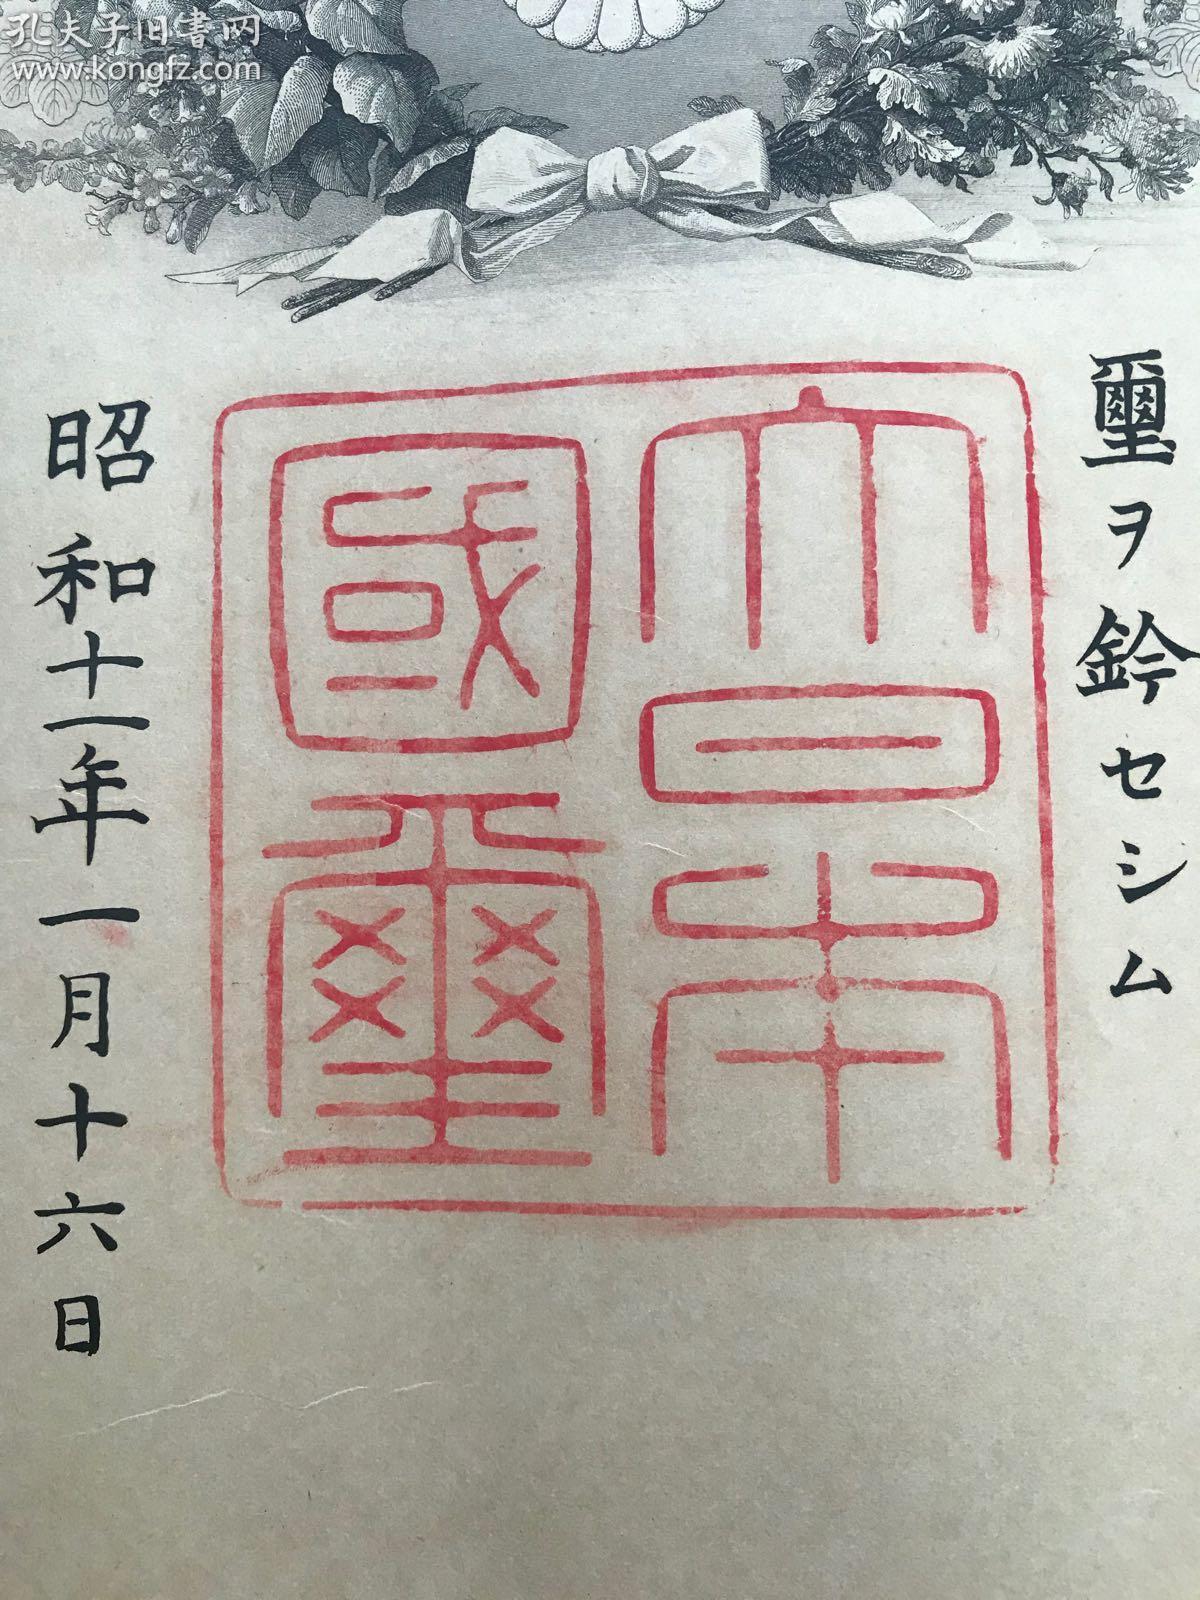 孔夫子旧書网
www.kongfz.com
璽ヲ鈐セシム
大日本
國璽
昭和十一年一月十六日